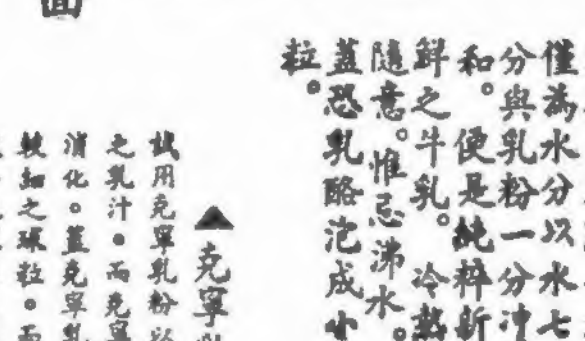 僅為水分以水七
分與乳粉一分冲
和。便是純粹新
鮮之牛乳。冷熱
隨意。惟忌沸水。
蓋恐乳酪泡成小
粒。
▲克寧
試用克寧乳粉以
之乳汁。而克寧
消化。蓋克寧乳
較細之球粒。而
面